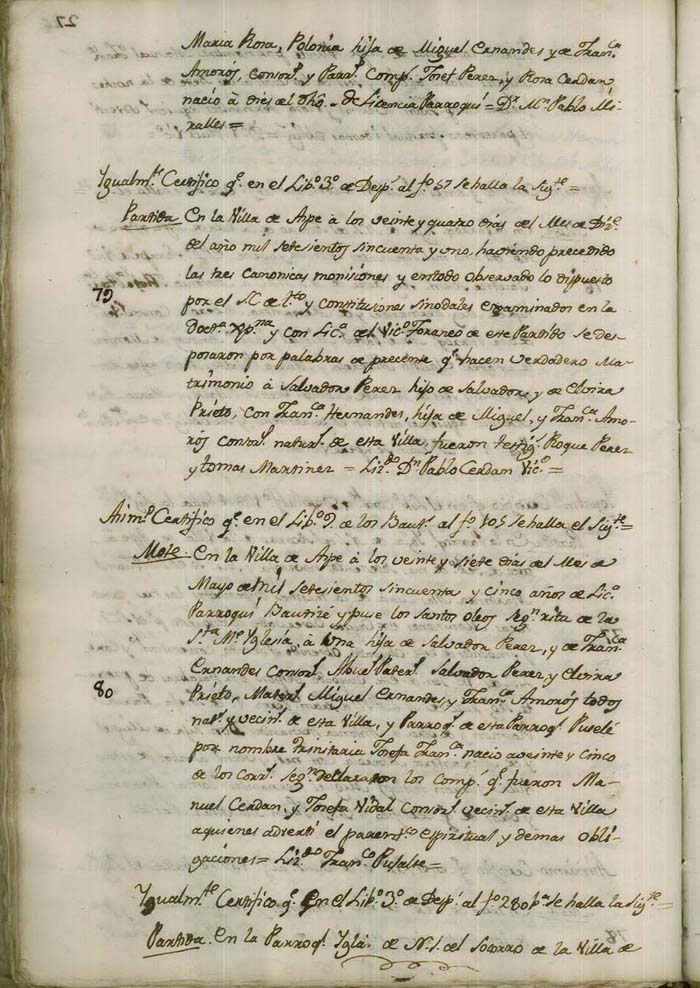 27
Maria Rosa, Polonia hija de Miguel Ernandes y de Fran.ca
Amorós, Consor.s y Parr.s Comp.s Josef Perez, y Rosa Cerdan
nació à dies del dho. = de Licencia Parroqui.l = D.r M.n Pablo Mi-
ralles =
Ygualm.te Certifico q.e en el Lib.o 3.o de Desp.s al f.o 57 se halla la Sig.te =
Partida. En la Villa de Aspe à los veinte y quatro dias del Mes de Diz.e
del año mil setesientos sincuenta y uno, haviendo precedido
las tres canonicas monisiones y entodo observado lo dispuesto
79
por el S.C. de T.to y constitusiones sinodales examinados en la
Doct.a Xp.na y con Lic.a del Vic.o Foraneo de este Partido se des-
posaron por palabras de precente q.e hacen verdadero Ma-
trimonio à Salvador Perez hijo de Salvador, y de Elvira
Prieto, con Fran.ca Hernandes, hija de Miguel, y Fran.ca Amo-
rós consor.s natur.s de esta Villa, fueron testig.s Roque Perez
y tomas Martinez = Liz.do D.n Pablo Cerdan Vic.o =
Asim.o Certifico q.e en el Lib.o 9. de los Baut.s al f.o 105 se halla el Sig.te =
Mote. En la Villa de Aspe à los veinte y siete dias del Mes de
Mayo de mil setesientos sincuenta y cinco años de Lic.a
Parroqui.l Bautizé y puse los Santos Oleos seg.n rita de la
S.ta M.e Yglesia, à Una hija de Salvador Perez, y de Fran.ca
Ernandes Consor.s Abuel.s Pater.s Salvador Perez, y Elvira
80
Prieto, Mater.s Miguel Ernandes, y Fran.ca Amorós todos
nat.s y vecin.s de esta Villa, y Parroq.s de esta Parroq.l Puselé
por nombre Trinitaria Josefa Fran.ca nacio aveinte y cinco
de los corr.s seg.n declararon los comp.s q.e fueron Ma-
nuel Cerdan, y Josefa Vidal Consor.s vecin.s de esta Villa
aquienes advertí el parent.co espiritual y demas obli-
gaciones = Liz.do Fran.co Pujalte =
Ygualm.te Certifico q.e en el Lib.o 3.o de Desp.s al f.o 280 b.ta se halla la Sig.te =
Partida. En la Parroq.l Ygla. de N.S. del Socorro de la Villa de